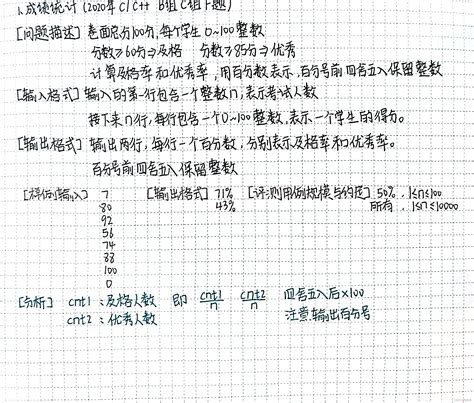 1.成绩统计 (2020年 C/C++ B组C组F题)
[问题描述] 卷面总分100分,每个学生 0~100整数
分数≥60分⇒及格 分数≥85分⇒优秀
计算及格率和优秀率,用百分数表示,百分号前四舍五入保留整数
[输入格式] 输入的第一行包含一个整数n,表示考试人数
接下来n行,每行包含一个0~100整数,表示一个学生的得分。
[输出格式] 输出两行,每行一个百分数,分别表示及格率和优秀率。
百分号前四舍五入保留整数
[样例输入] 7 [输出格式] 71% [评测用例规模与约定] 50%, 1≤n≤100
80 43% 所有, 1≤n≤10000
92
56
74
88
100
0
[分析] cnt1:及格人数 即 cnt1/n cnt2/n 四舍五入后×100
cnt2:优秀人数 注意输出百分号